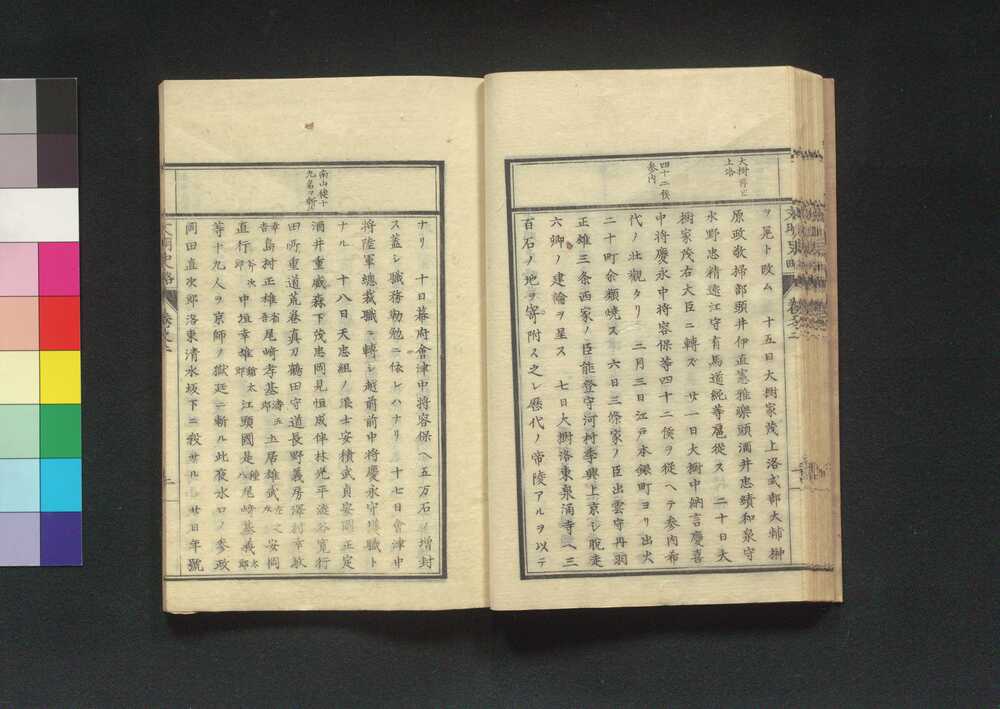 大樹再ヒ
上洛
四十二侯
参内
ヲ尾ト改ム 十五日大樹家茂上洛式部大輔榊
原政敬掃部頭井伊直憲雅樂頭酒井忠績和泉守
水野忠精遠江守有馬道純等扈從ス 二十日大
樹家茂右大臣ニ轉ス 廿一日大樹中納言慶喜
中将慶永中将容保等四十二侯ヲ從ヘテ参内希
代ノ壮觀タリ 二月三日江戸本銀町ヨリ出火
二十町余類焼ス 六日三條家ノ臣出雲守丹羽
正雄三条西家ノ臣能登守河村季興上京シ脱走
六卿ノ建論ヲ呈ス 七日大樹洛東泉涌寺ヘ三
百石ノ地ヲ寄附ス之レ歴代ノ帝陵アルヲ以テ
南山徒十
九名ヲ斬
ナリ 十日幕府會津中将容保ヘ五万石増封
ス蓋シ職務勤勉ニ依レハナリ 十七日會津中
将陸軍總裁職ニ轉シ越前前中将慶永守護職ト
ナル 十八日天忠組ノ浪士安積武貞安岡正定
酒井重威森下茂忠岡見恒成伴林光平澁谷寛行
田所重道荒巻真刀鶴田守道長野義房澤村幸敏
幸吾島村正雄省吾尾崎孝基濤五郎土居雄武佐之丞安岡
直行斧次郎中垣幸雄鎗太郎江頭國是種八尾崎基義太郎
等十九人ヲ京師ノ獄廷ニ斬ル此夜水口ノ参政
岡田直次郎洛東清水坂下ニ殺サル 廿日年號
文明史略
巻之二